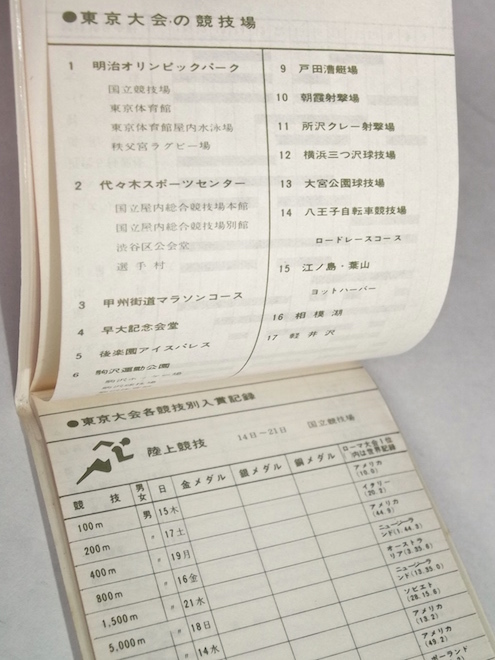 ●東京大会・の競技場
1 明治オリンピックパーク
国立競技場
東京体育館
東京体育館屋内水泳場
秩父宮ラグビー場
2 代々木スポーツセンター
国立屋内総合競技場本館
国立屋内総合競技場別館
渋谷区公会堂
選手村
3 甲州街道マラソンコース
4 早大記念会堂
5 後楽園アイスパレス
6 駒沢運動公園
9 戸田漕艇場
10 朝霞射撃場
11 所沢クレー射撃場
12 横浜三つ沢球技場
13 大宮公園球技場
14 八王子自転車競技場
ロードレースコース
15 江ノ島・葉山
ヨットハーバー
16 相模湖
17 軽井沢
●東京大会各競技別入賞記録
陸上競技 14日〜21日 国立競技場
競技 男女 日 金メダル 銀メダル 銅メダル ローマ大会1位 ()内は世界記録
100m 男 15木 アメリカ (10.0)
200m 〃 17土 イタリー (20.2)
400m 〃 19月 アメリカ (44.9)
800m 〃 16金 ニュージーランド(1.44.3)
1,500m 〃 21水 オーストラリア(3.35.6)
5,000m 〃 18日 ニュージーランド(13.35.0)
〃 14水 ソビエト (28.15.6)
アメリカ (13.2)
アメリカ (49.2)
ポーランド